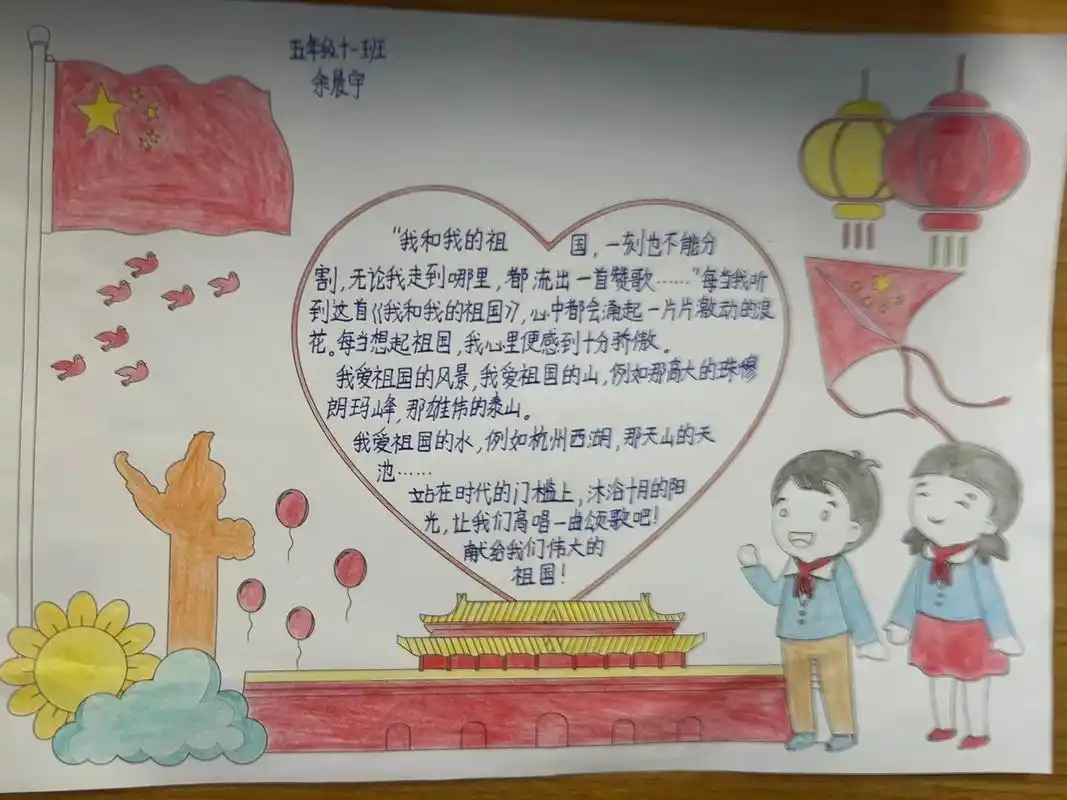 五年级十一班
余晨宇
“我和我的祖国，一刻也不能分
割，无论我走到哪里，都流出一首赞歌……”每当我听
到这首《我和我的祖国》，心中都会涌起一片片激动的浪
花。每当想起祖国，我心里便感到十分骄傲。
我爱祖国的风景，我爱祖国的山，例如那高大的珠穆
朗玛峰，那雄伟的泰山。
我爱祖国的水，例如杭州西湖，那天山的天
池……
站在时代的门槛上，沐浴十月的阳
光，让我们高唱一曲颂歌吧！
献给我们伟大的
祖国！